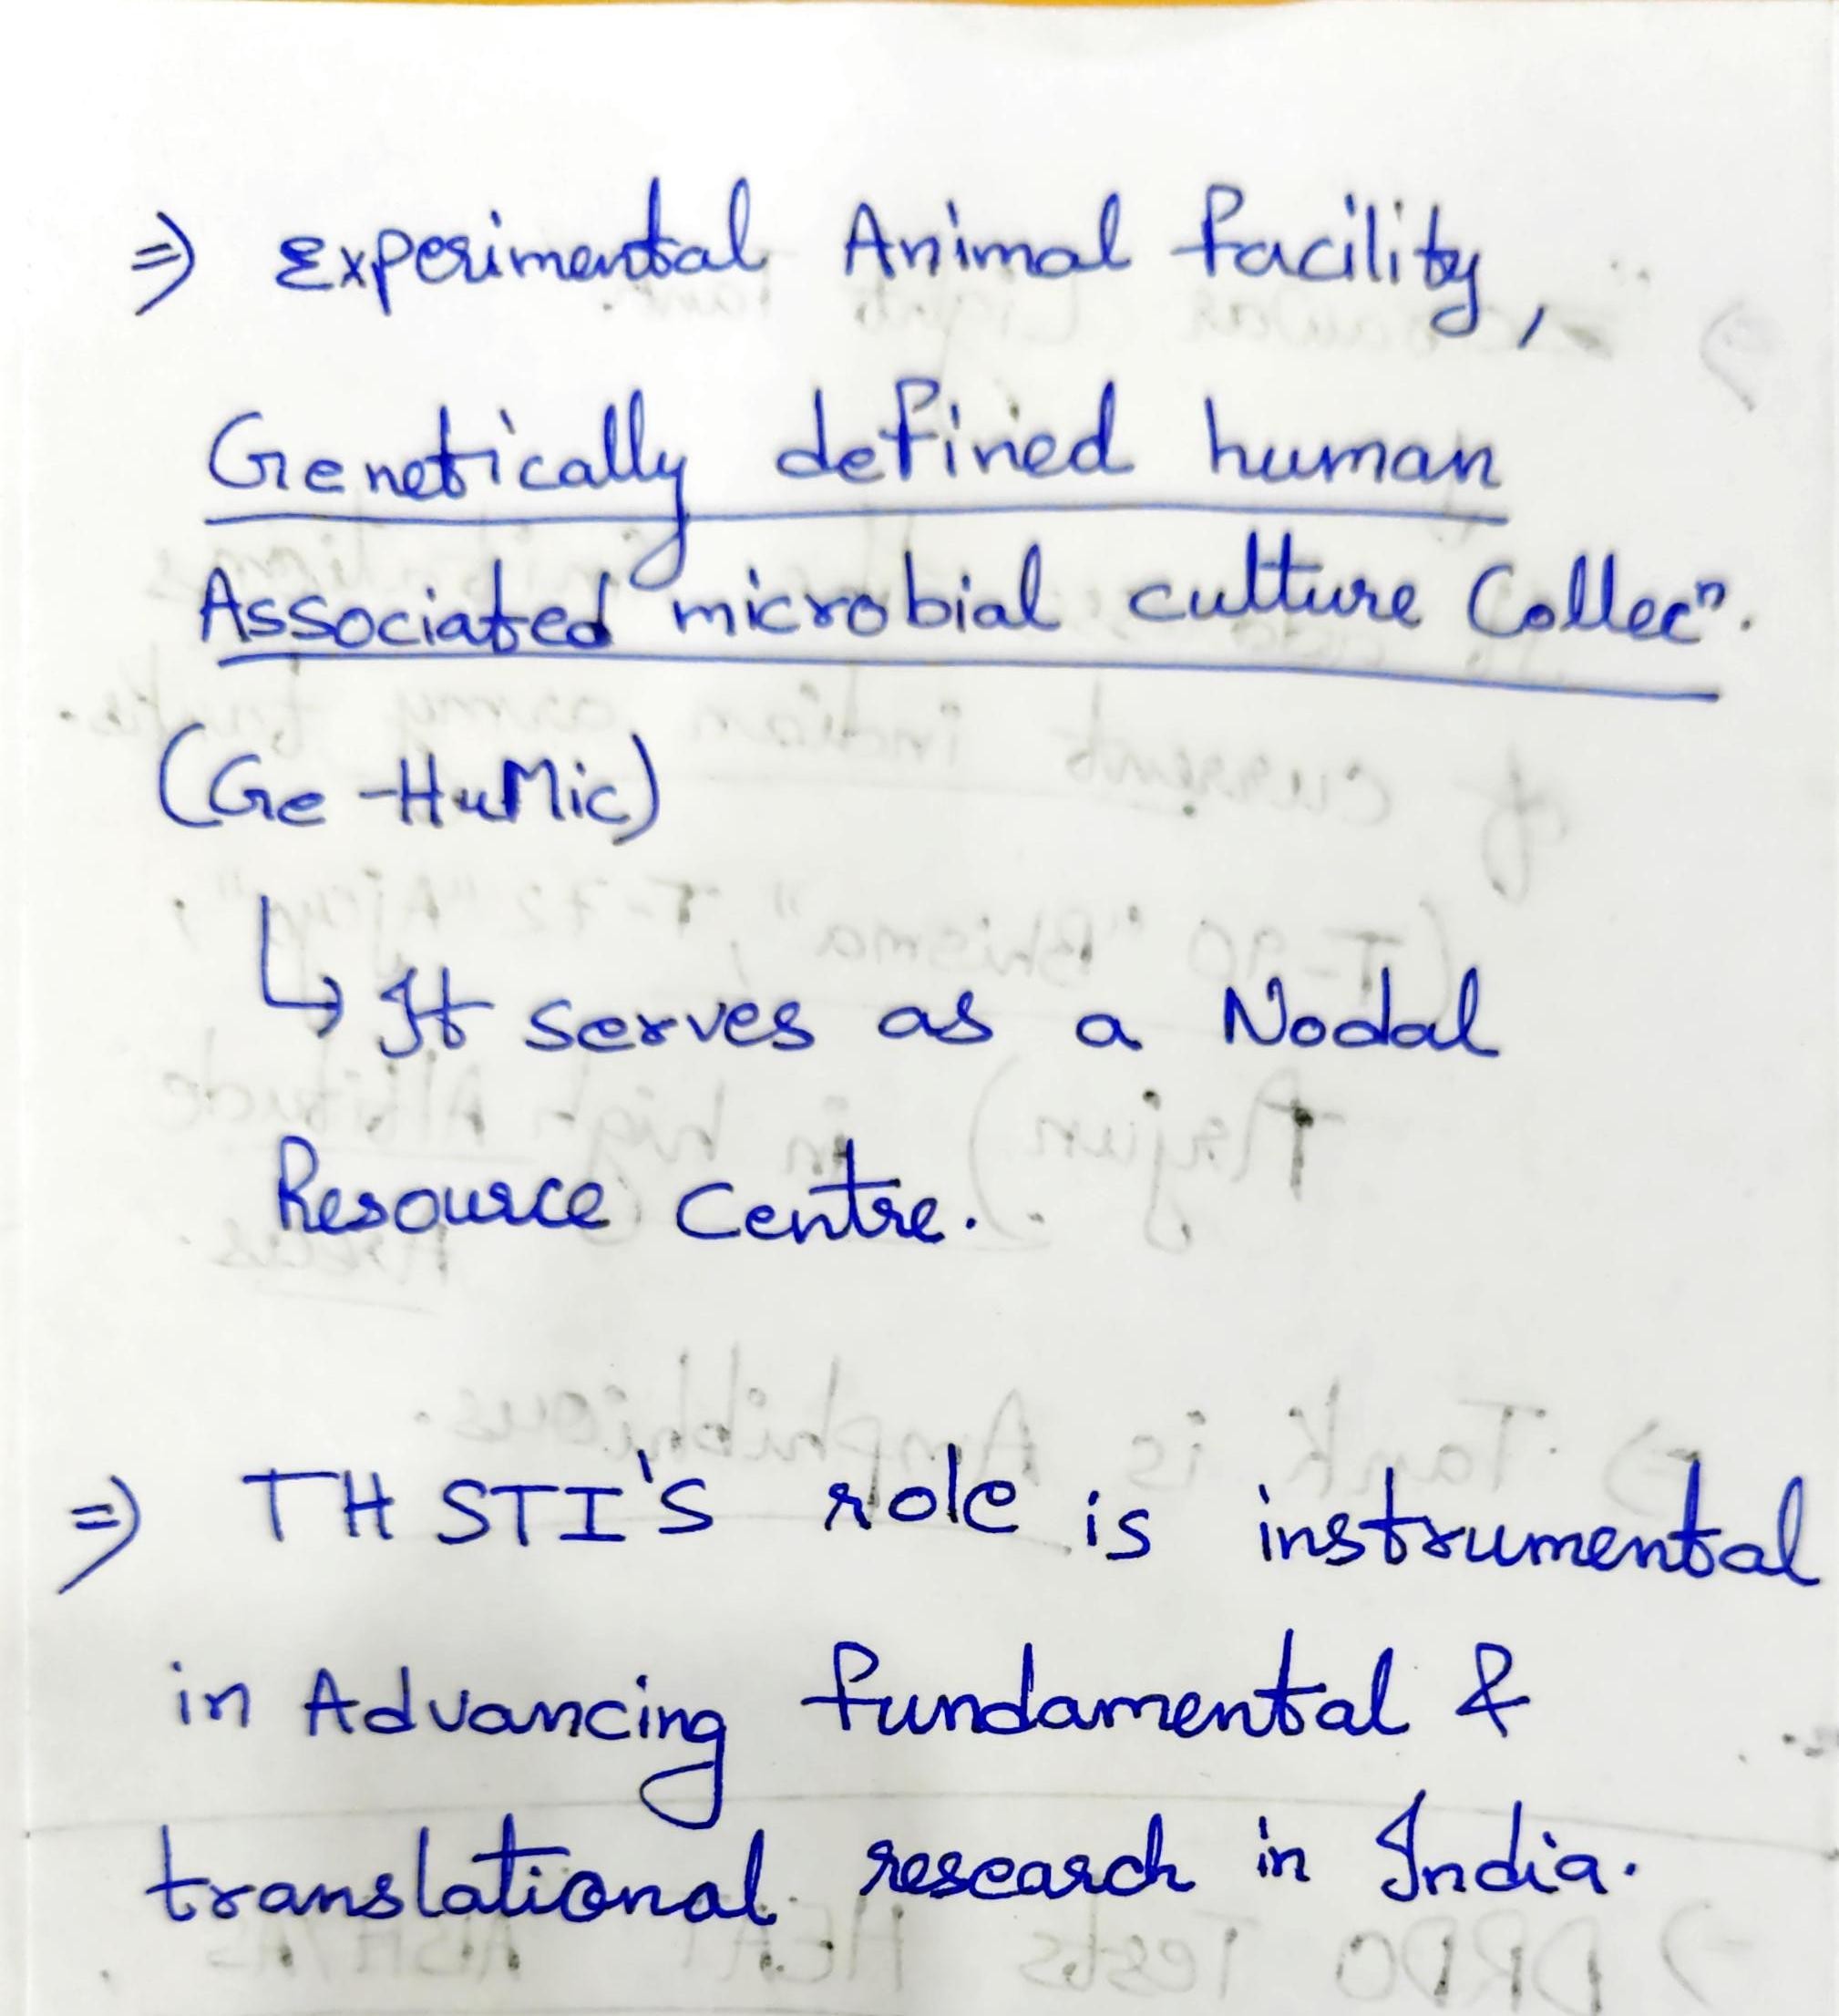 ⇒ Experimental Animal facility,
Genetically defined human
Associated microbial culture Collecⁿ.
(Ge-HuMic)
↳ It serves as a Nodal
Resource Centre.
⇒ THSTI'S role is instrumental
in Advancing fundamental &
translational research in India.